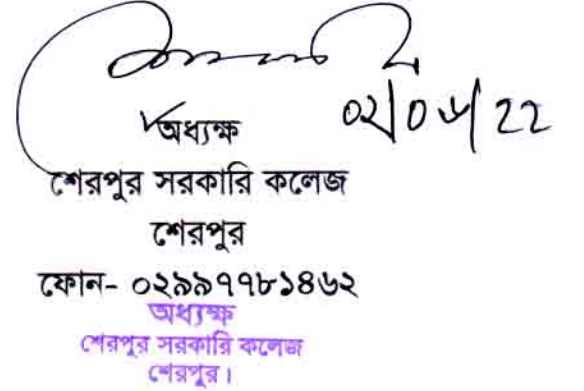 ০২/০৬/22
অধ্যক্ষ
শেরপুর সরকারি কলেজ
শেরপুর
ফোন- ০২৯৯৭৭৮১৪৬২
অধ্যক্ষ
শেরপুর সরকারি কলেজ
শেরপুর।